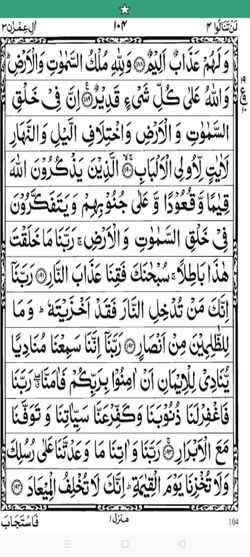 لَنْ تَنَالُوا ۴ ۱۰۴ اٰلِ عِمْرٰن ۳
وَلَهُمْ عَذَابٌ اَلِيْمٌ ﴿۱۸۸﴾ وَلِلّٰهِ مُلْكُ السَّمٰوٰتِ وَالْاَرْضِ
وَاللّٰهُ عَلٰى كُلِّ شَيْءٍ قَدِيْرٌ ﴿۱۸۹﴾ اِنَّ فِيْ خَلْقِ
السَّمٰوٰتِ وَالْاَرْضِ وَاخْتِلَافِ الَّيْلِ وَالنَّهَارِ
لَاٰيٰتٍ لِّاُولِي الْاَلْبَابِ ﴿۱۹۰﴾ الَّذِيْنَ يَذْكُرُوْنَ اللّٰهَ
قِيٰمًا وَّقُعُوْدًا وَّعَلٰى جُنُوْبِهِمْ وَيَتَفَكَّرُوْنَ
فِيْ خَلْقِ السَّمٰوٰتِ وَالْاَرْضِ ۚ رَبَّنَا مَا خَلَقْتَ
هٰذَا بَاطِلًا ۚ سُبْحٰنَكَ فَقِنَا عَذَابَ النَّارِ ﴿۱۹۱﴾ رَبَّنَاۤ
اِنَّكَ مَنْ تُدْخِلِ النَّارَ فَقَدْ اَخْزَيْتَهٗ ؕ وَمَا
لِلظّٰلِمِيْنَ مِنْ اَنْصَارٍ ﴿۱۹۲﴾ رَبَّنَاۤ اِنَّنَا سَمِعْنَا مُنَادِيًا
يُّنَادِيْ لِلْاِيْمَانِ اَنْ اٰمِنُوْا بِرَبِّكُمْ فَاٰمَنَّا ۖ رَبَّنَا
فَاغْفِرْ لَنَا ذُنُوْبَنَا وَكَفِّرْ عَنَّا سَيِّاٰتِنَا وَتَوَفَّنَا
مَعَ الْاَبْرَارِ ﴿۱۹۳﴾ رَبَّنَا وَاٰتِنَا مَا وَعَدْتَّنَا عَلٰى رُسُلِكَ
وَلَا تُخْزِنَا يَوْمَ الْقِيٰمَةِ ؕ اِنَّكَ لَا تُخْلِفُ الْمِيْعَادَ ﴿۱۹۴﴾
فَاسْتَجَابَ منزل ۱ 104